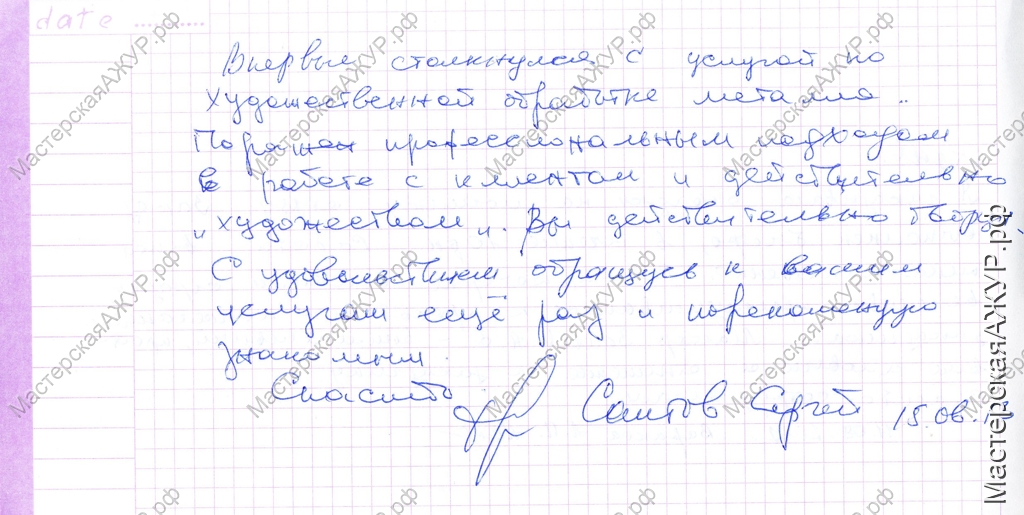 date ............
Впервые столкнулся с услугой по
художественной обработке металла..
Поражен профессиональным подходом
в работе с клиентом и действительно
„художеством„. Вы действительно
С удовольствием обращусь к вашим
услугам ещё раз и порекомендую
знакомым.
Спасибо Саитов Сергей 15.08.
МастерскаяАЖУР.рф